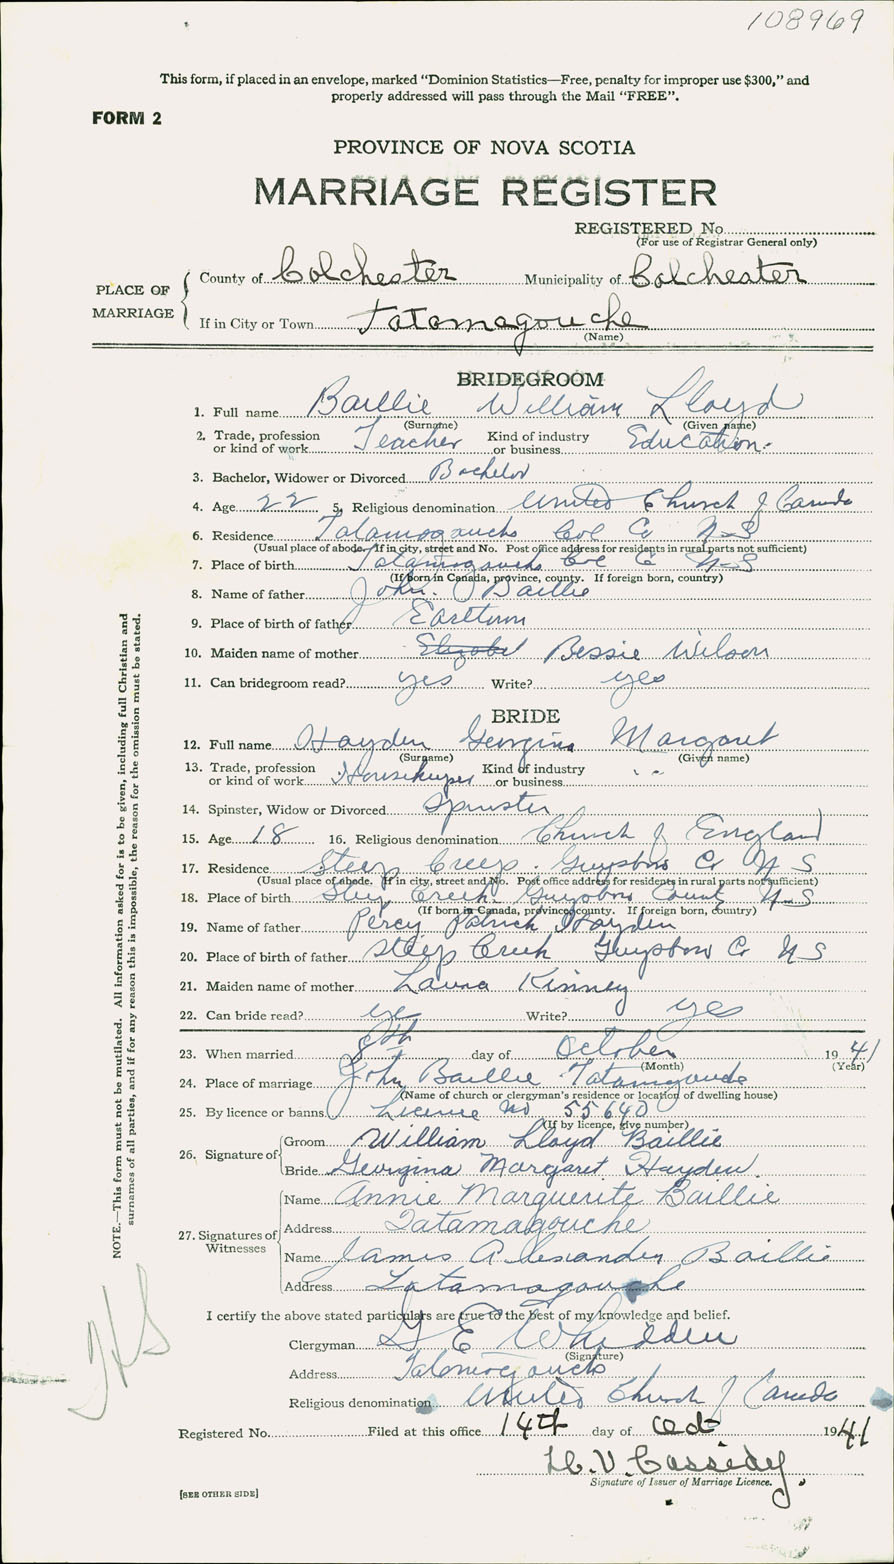 108969
This form, if placed in an envelope, marked “Dominion Statistics—Free, penalty for improper use $300,” and
properly addressed will pass through the Mail “FREE”.
FORM 2
PROVINCE OF NOVA SCOTIA
MARRIAGE REGISTER
REGISTERED No.
(For use of Registrar General only)
PLACE OF MARRIAGE
County of Colchester Municipality of Colchester
If in City or Town Tatamagouche
(Name)
BRIDEGROOM
1. Full name Baillie William Lloyd
(Surname) (Given name)
2. Trade, profession or kind of work Teacher Kind of industry or business Education.
3. Bachelor, Widower or Divorced Bachelor
4. Age 22 5. Religious denomination United Church of Canada
6. Residence Tatamagouche Col Co N-S
(Usual place of abode. If in city, street and No. Post office address for residents in rural parts not sufficient)
7. Place of birth Tatamagouche Col C N-S
(If born in Canada, province, county. If foreign born, country)
8. Name of father John. J Baillie
9. Place of birth of father Earltown
10. Maiden name of mother Bessie Wilson
11. Can bridegroom read? yes Write? yes
BRIDE
12. Full name Hayden Georgina Margaret
(Surname) (Given name)
13. Trade, profession or kind of work Housekeeper Kind of industry or business " "
14. Spinster, Widow or Divorced Spinster
15. Age 18 16. Religious denomination Church of England
17. Residence Steep Creep. Guysboro Co N S
(Usual place of abode. If in city, street and No. Post office address for residents in rural parts not sufficient)
18. Place of birth Steep Creek. Guysboro County N-S
(If born in Canada, province, county. If foreign born, country)
19. Name of father Percy Patrick Hayden
20. Place of birth of father Steep Creek Guysboro Co N S
21. Maiden name of mother Laura Kinney
22. Can bride read? yes Write? yes
23. When married 8th day of October 1941
(Month) (Year)
24. Place of marriage John Baillie Tatamagouche
(Name of church or clergyman's residence or location of dwelling house)
25. By licence or banns Licence No 55640
(If by licence, give number)
26. Signature of
Groom William Lloyd Baillie
Bride Georgina Margaret Hayden.
27. Signatures of Witnesses
Name Annie Marguerite Baillie
Address Tatamagouche
Name James Alexander Baillie
Address Tatamagouche
I certify the above stated particulars are true to the best of my knowledge and belief.
Clergyman E Whidden
(Signature)
Address Tatamagouche
Religious denomination United Church of Canada
Registered No. Filed at this office 14th day of Oct 1941
H.V. Cassidy
Signature of Issuer of Marriage Licence.
[SEE OTHER SIDE]
NOTE.—This form must not be mutilated. All information asked for is to be given, including full Christian and
surnames of all parties, and if for any reason this is impossible, the reason for the omission must be stated.